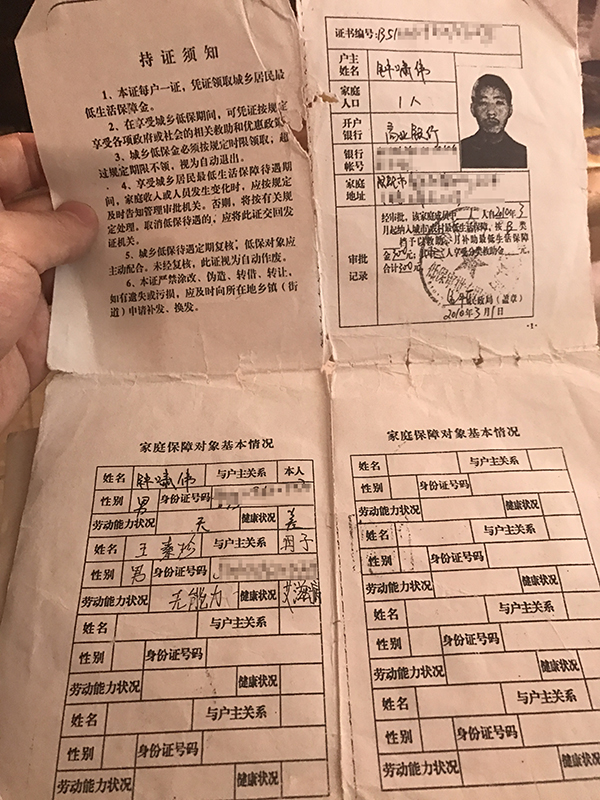 持证须知
1、本证每户一证，凭证领取城乡居民最
低生活保障金。
2、在享受城乡低保期间，可凭证按规定
享受各项政府或社会的相关救助和优惠政策
3、城乡低保金必须按规定时限领取，超
过规定期限不领，视为自动退出。
4、享受城乡居民最低生活保障待遇期
间，家庭收入或人员发生变化时，应按规定
及时告知管理审批机关。否则，将按有关规
定处理。取消低保待遇的，应将此证交回发
证机关。
5、城乡低保待遇定期复核，低保对象应
主动配合。未经复核，此证视为自动作废。
6、本证严禁涂改、伪造、转借、转让，
如有遗失或污损，应及时向所在地乡镇（街
道）申请补发、换发。
证书编号:B51
户主
姓名
家庭
人口
1人
开户
银行
商业银行
银行
帐号
家庭
地址
审批
记录
经审批，该家庭成员中1人自2010年3
月起纳入城市农村最低生活保障，按B类
补助最低生活保障
人享受分类救助金 元，
民政局（盖章）
2010年3月1日
-1-
家庭保障对象基本情况
姓名 与户主关系 本人
性别 男 身份证号码
劳动能力状况 无 健康状况 差
姓名 王 松 与户主关系
性别 男 身份证号码
劳动能力状况 无能力 健康状况 艾滋病
姓名 与户主关系
性别 身份证号码
劳动能力状况 健康状况
姓名 与户主关系
性别 身份证号码
劳动能力状况 健康状况
家庭保障对象基本情况
姓名 与户主关系
性别 身份证号码
劳动能力状况 健康状况
姓名 与户主关系
性别 身份证号码
劳动能力状况 健康状况
姓名 与户主关系
性别 身份证号码
劳动能力状况 健康状况
姓名 与户主关系
性别 身份证号码
劳动能力状况 健康状况